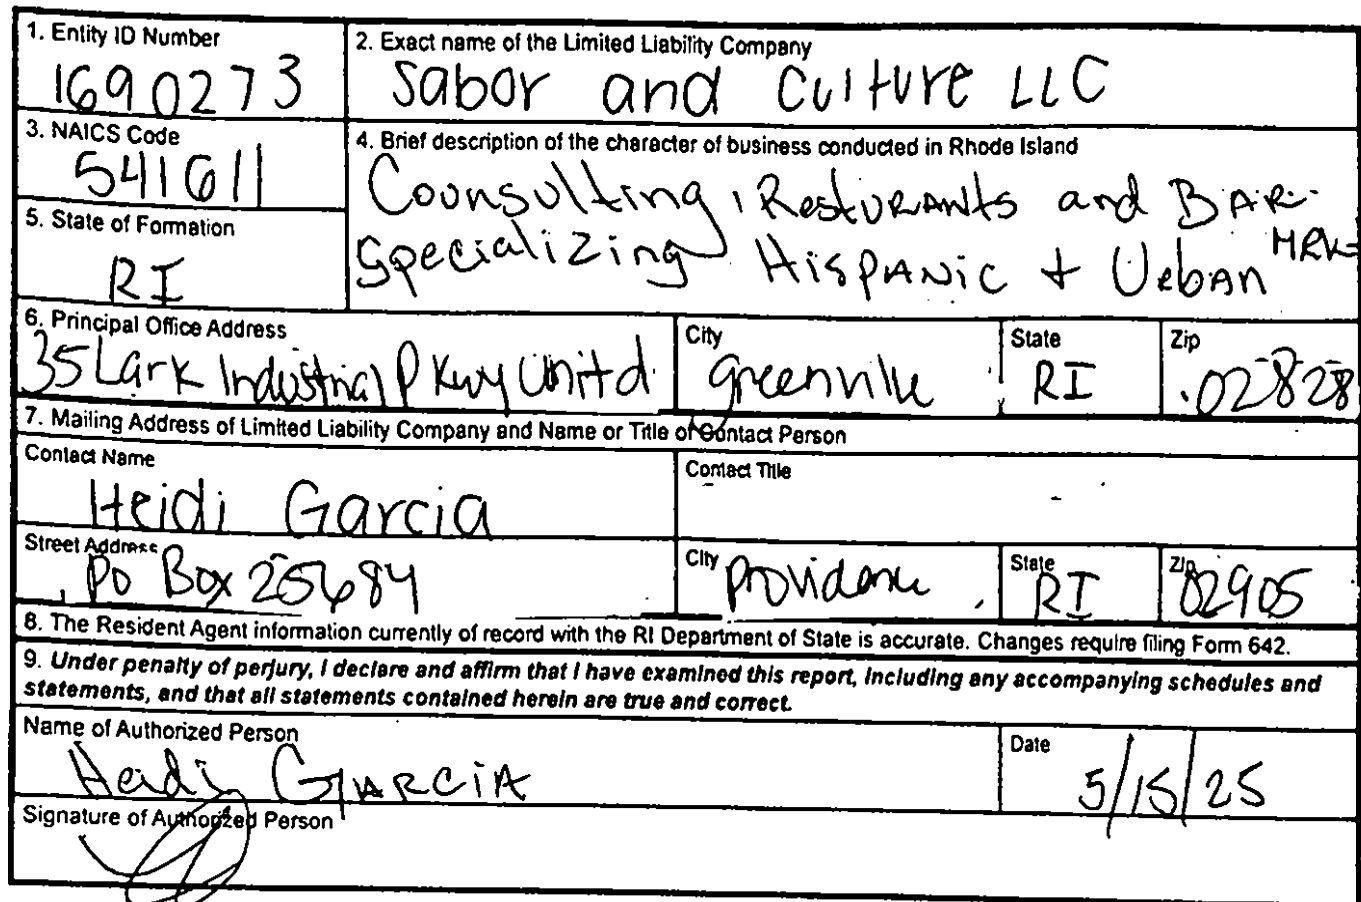 1. Entity ID Number
1690273
2. Exact name of the Limited Liability Company
Sabor and Culture LLC
3. NAICS Code
541611
4. Brief description of the character of business conducted in Rhode Island
Counsulting, Resturants and BAR
Specializing Hispanic + Urban MRK
5. State of Formation
RI
6. Principal Office Address
35 Lark Industrial Pkwy Unit d
City
greenville
State
RI
Zip
02828
7. Mailing Address of Limited Liability Company and Name or Title of Contact Person
Contact Name
Heidi Garcia
Contact Title
Street Address
PO Box 25684
City
Providence
State
RI
Zip
02905
8. The Resident Agent information currently of record with the RI Department of State is accurate. Changes require filing Form 642.
9. Under penalty of perjury, I declare and affirm that I have examined this report, including any accompanying schedules and
statements, and that all statements contained herein are true and correct.
Name of Authorized Person
Heidi GARCIA
Date
5/15/25
Signature of Authorized Person